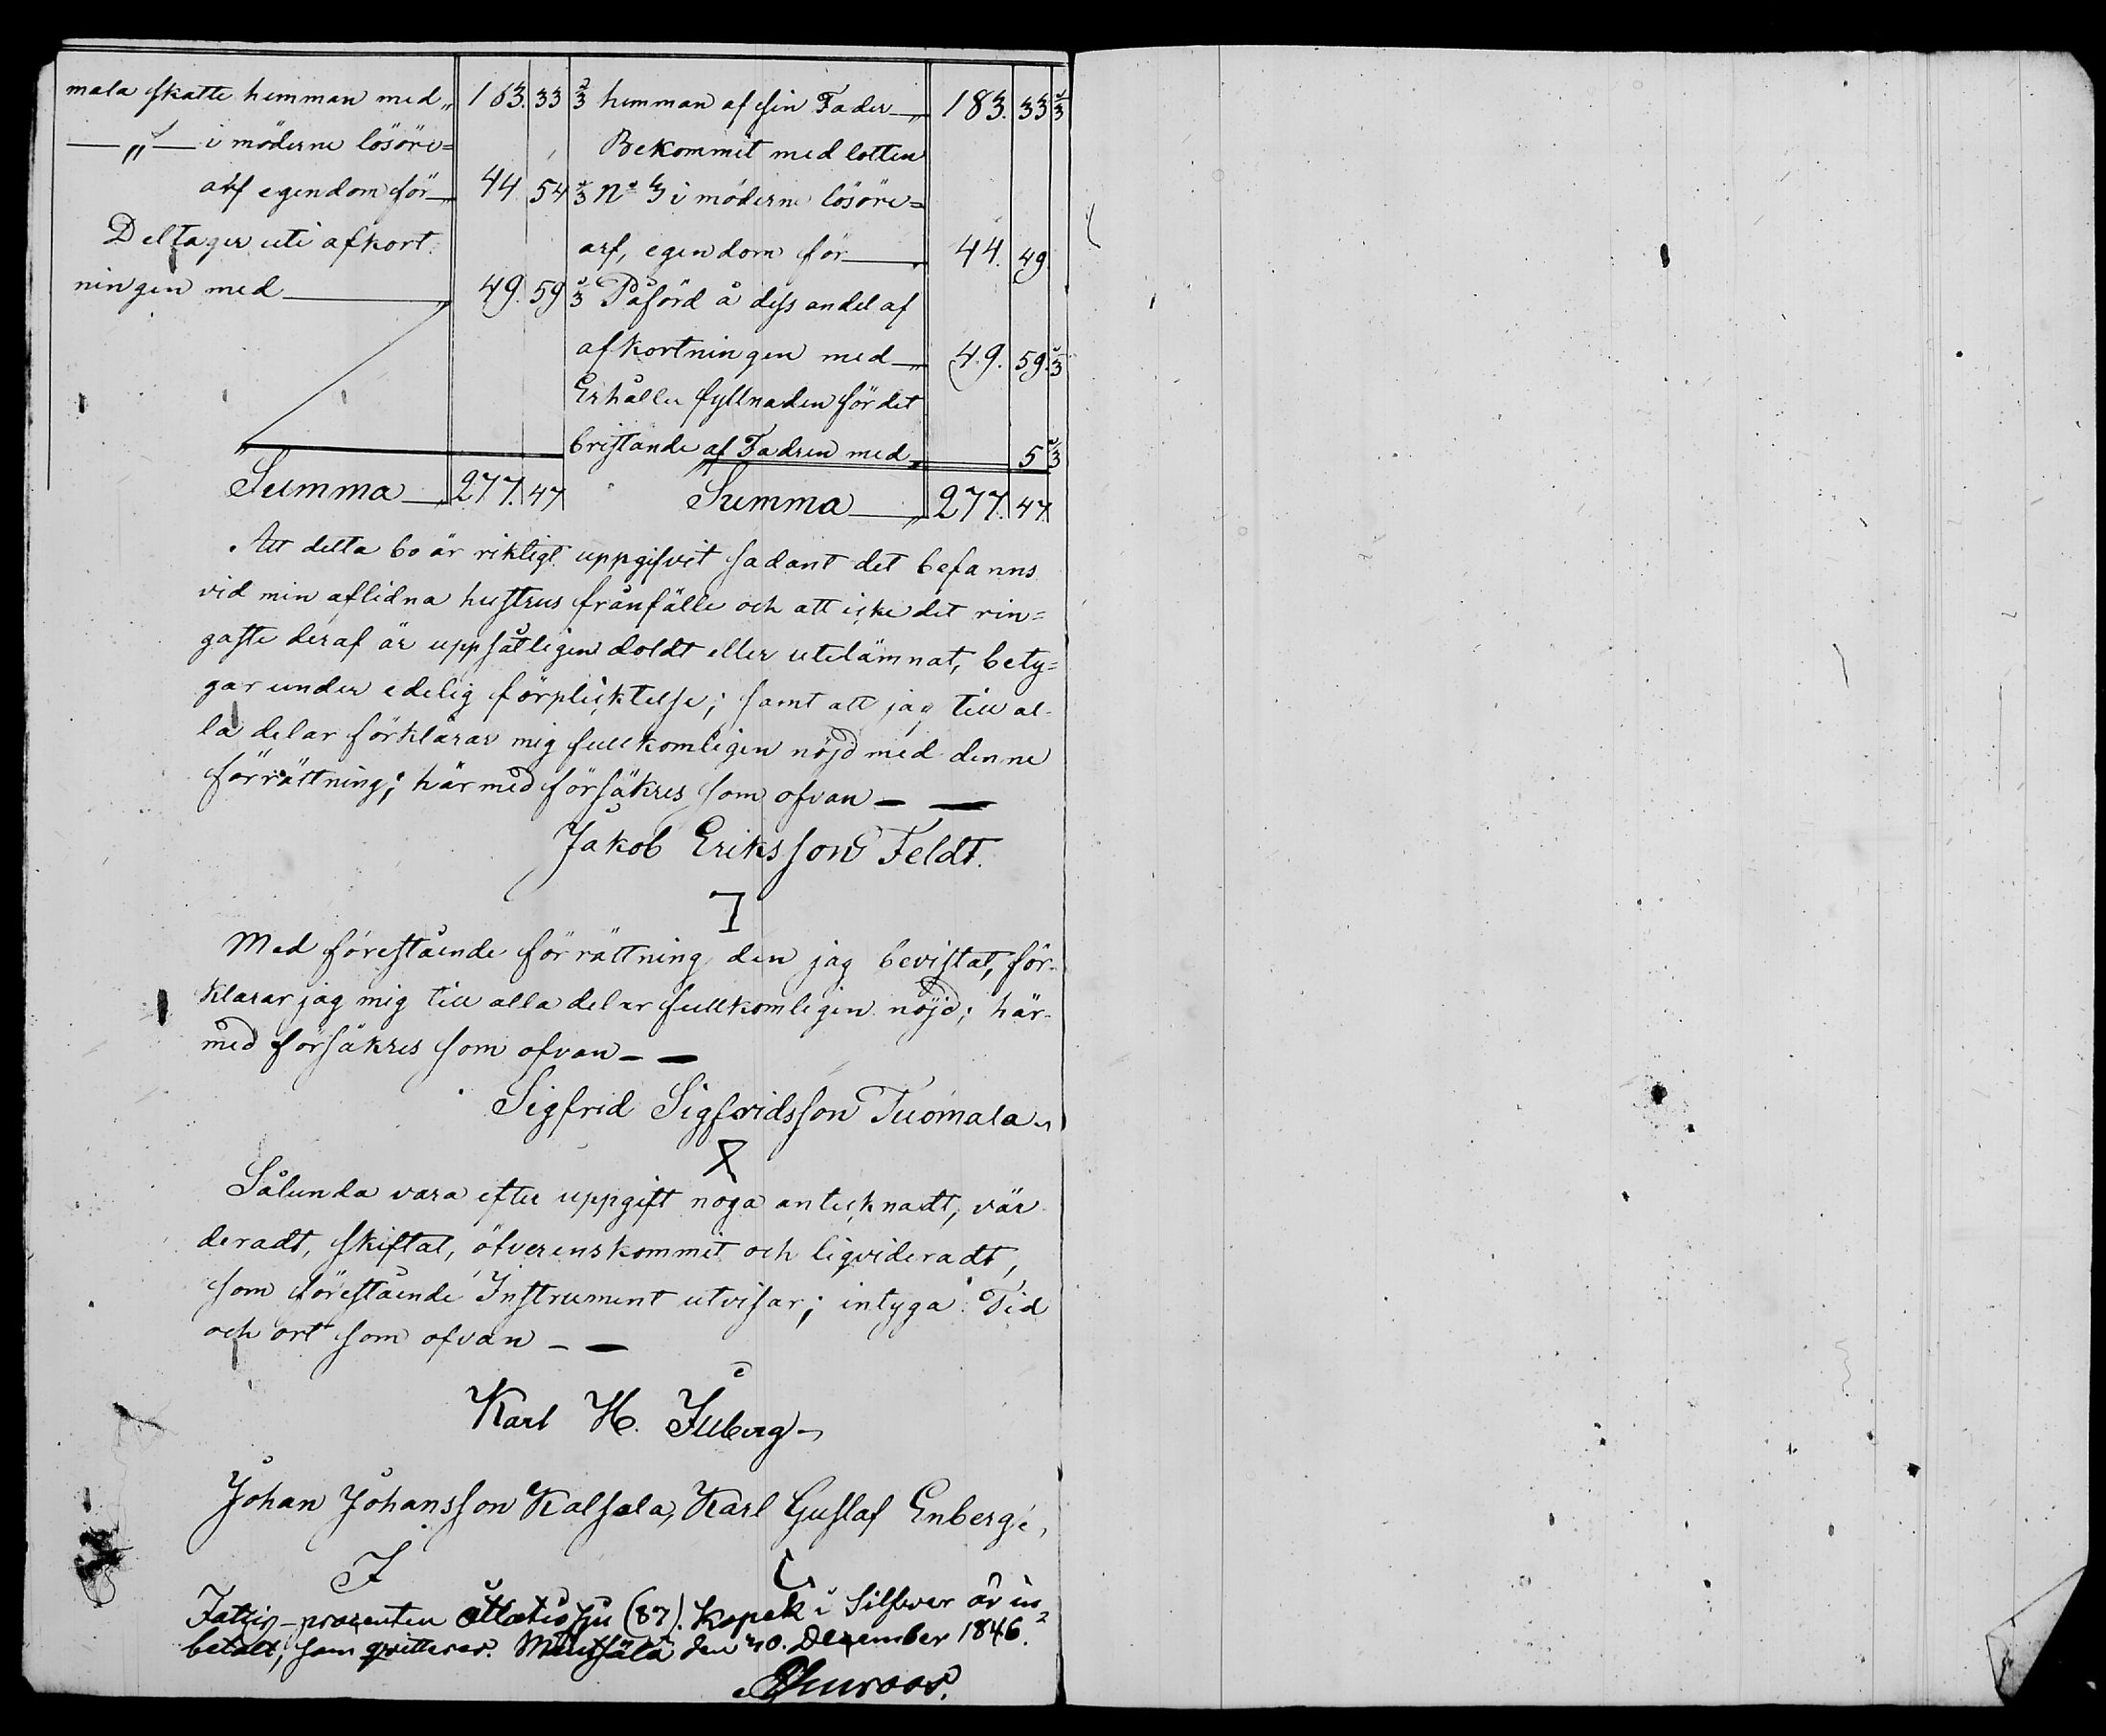 mala skatte hemman med „ 183. 33 1/3
— „ — i möderne lösöre=
arf egendom för — 44 54 1/3
Deltager uti afkort-
ningen med — 49. 59 1/3
Summa — 277. 47
hemman af sin Fader — „ 183. 33 1/3
Bekommit med lotten
N:o 3 i möderne lösöre=
arf, egendom för — 44. 49.
Påförd å dess andel af
afkortningen med — „ 49. 59. 1/3
Erhåller fyllnaden för det
bristande af Fadren med „ 5 1/3
Summa — „ 277. 47
Att detta bo är riktigt uppgifvit sadant det befanns
vid min aflidna hustrus frånfälle och att icke det rin=
gaste deraf är uppsåtligen doldt eller utelämnat, bety=
gar under edelig förplicktelse; samt att jag till al-
la delar förklarar mig fullkomligen nöjd med denne
förrättning; härmed försäkres som ofvan — —
Jakob Eriksson Feldt.
Med förestående förrättning den jag bevistat, för-
klarar jag mig till alla delar fullkomligen nöjd; här-
med försäkres som ofvan — —
Sigfrid Sigfridsson Tuomala
Sålunda vara efter uppgift noga antecknadt, vär
deradt, skiftat, öfverenskommit och liqvideradt,
som förestående Instrument utvisar; intyga. Tid
och ort som ofvan — —
Karl H. Juberg
Johan Johansson Kalsala, Karl Gustaf Enberg,
Fattig-procenten åttatiosju (87). Kopek i Silfwer är in
betalt, som qvitteras. Mäntsälä den 30. December 1846.